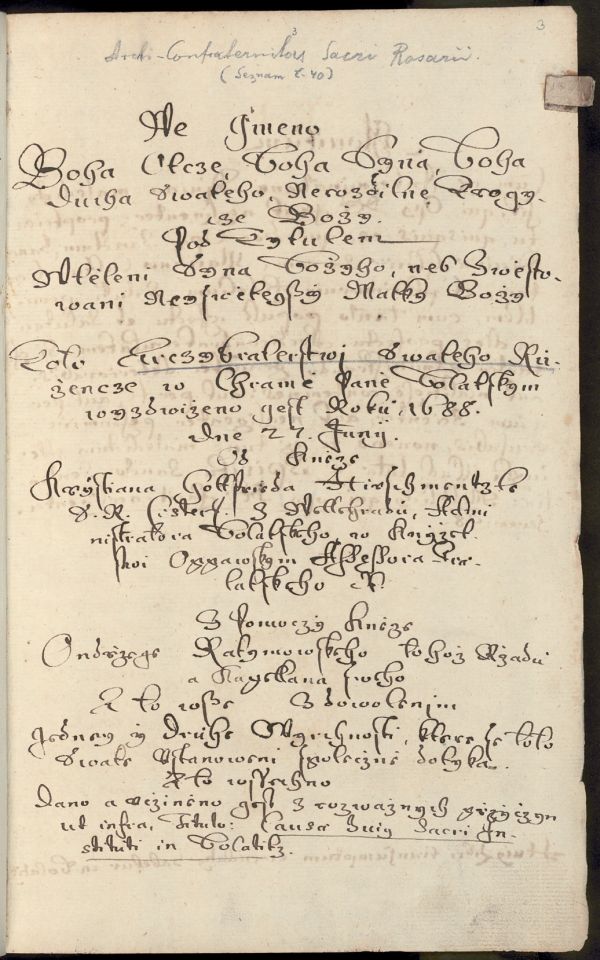 3
3
Archi-Confraternitas Sacri Rosarii.
(Seznam t. 40)
We Gmeno
Boha Otcze, Boha Syna, Boha
Ducha Swateho, Nerozdilne Trogy-
cze Božy.
Pod Tytulem
Wtěleni Syna Božyho, neb Zwěsto-
wani Neyswětegssy Matky Božy
Toto Arczybraterstwj Swateho Rů-
žencze w Chramě Paně Bolatskym
wyzdwiženo gest Roku, 1688.
dne 27. Junij.
Od Kněze
Krystiana Gottfrieda Hirschmentzle
S. R. Cisterc. z Wellehradu, Admi
nistratora Bolatskeho, w Knyžet.
stwi Oppawskym Assessora
latskeho
Z Pomoczy Kněze
Ondržege Ratymowskeho tohož Ržadu
a Kapellana sweho
A to wsse z dowolenim
Gedney y Druhe Wrchnosti, ktere se toto
Swate Ustanoweni společně dotyka.
A to wssechno
Dano a učiněno gest z rozwažnych przyčzyn
ut infra, Titulo: Causae huius Sacri In-
stituti in Bolatitz.